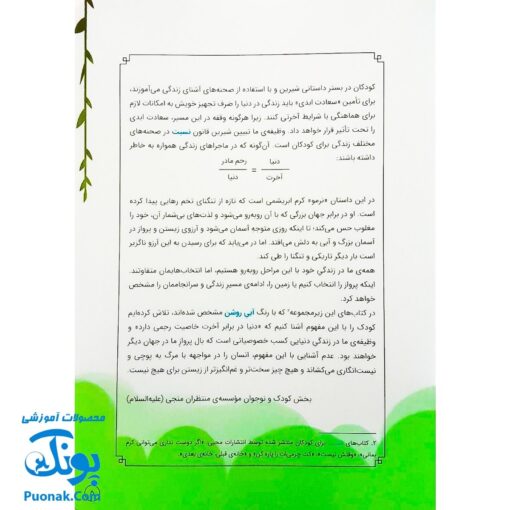 کودکان در بستر داستانی شیرین و با استفاده از صحنه‌های آشنای زندگی می‌آموزند،
برای تأمین «سعادت ابدی» باید زندگی در دنیا را صرف تجهیز خویش به امکانات لازم
برای هماهنگی با شرایط آخرتی کنند. زیرا هرگونه وقفه در این مسیر، سعادت ابدی
را تحت تأثیر قرار خواهد داد. وظیفه‌ی ما تبیین شیرین قانون نسبت در صحنه‌های
مختلف زندگی برای کودکان است. آن‌گونه که در ماجراهای زندگی همواره به خاطر
داشته باشند:
رحم مادر / دنیا = دنیا / آخرت
در این داستان «نرمو» کرم ابریشمی است که تازه از تنگنای تخم رهایی پیدا کرده
است. او در برابر جهان بزرگی که با آن روبه‌رو می‌شود و لذت‌های بی‌شمار آن، خود را
مغلوب حس می‌کند؛ تا اینکه روزی متوجه آسمان می‌شود و آرزوی زیستن و پرواز در
آسمان بزرگ و آبی به دلش می‌افتد. اما در می‌یابد که برای رسیدن به این آرزو ناگزیر
است بار دیگر تاریکی و تنگنا را طی کند.
همه‌ی ما در زندگی خود با این مراحل روبه‌رو هستیم، اما انتخاب‌هایمان متفاوتند.
اینکه پرواز را انتخاب کنیم یا زمین را، ادامه‌ی مسیر زندگی و سرانجاممان را مشخص
خواهد کرد.
در کتاب‌های این زیرمجموعه۲ که با رنگ آبی روشن مشخص شده‌اند، تلاش کرده‌ایم
کودک را با این مفهوم آشنا کنیم که «دنیا در برابر آخرت خاصیت رحمی دارد» و
وظیفه‌ی ما در زندگی دنیایی کسب خصوصیاتی است که بال پرواز ما در جهان دیگر
خواهند بود. عدم آشنایی با این مفهوم، انسان را در مواجهه با مرگ به پوچی و
نیست‌انگاری می‌کشاند و هیچ چیز سخت‌تر و غم‌انگیزتر از زیستن برای هیچ نیست.
بخش کودک و نوجوان مؤسسه‌ی منتظران منجی (علیه‌السلام)
۲. کتاب‌های برای کودکان منتشر شده توسط انتشارات محیی: «اگر دوست نداری می‌توانی کرم
بمانی»، «وقتش نیست»، «کت چرمی‌ات را پاره کن» و «خانه‌ی قبلی، خانه‌ی بعدی».
محصولات آموزشی
پونک
Puonak.Com